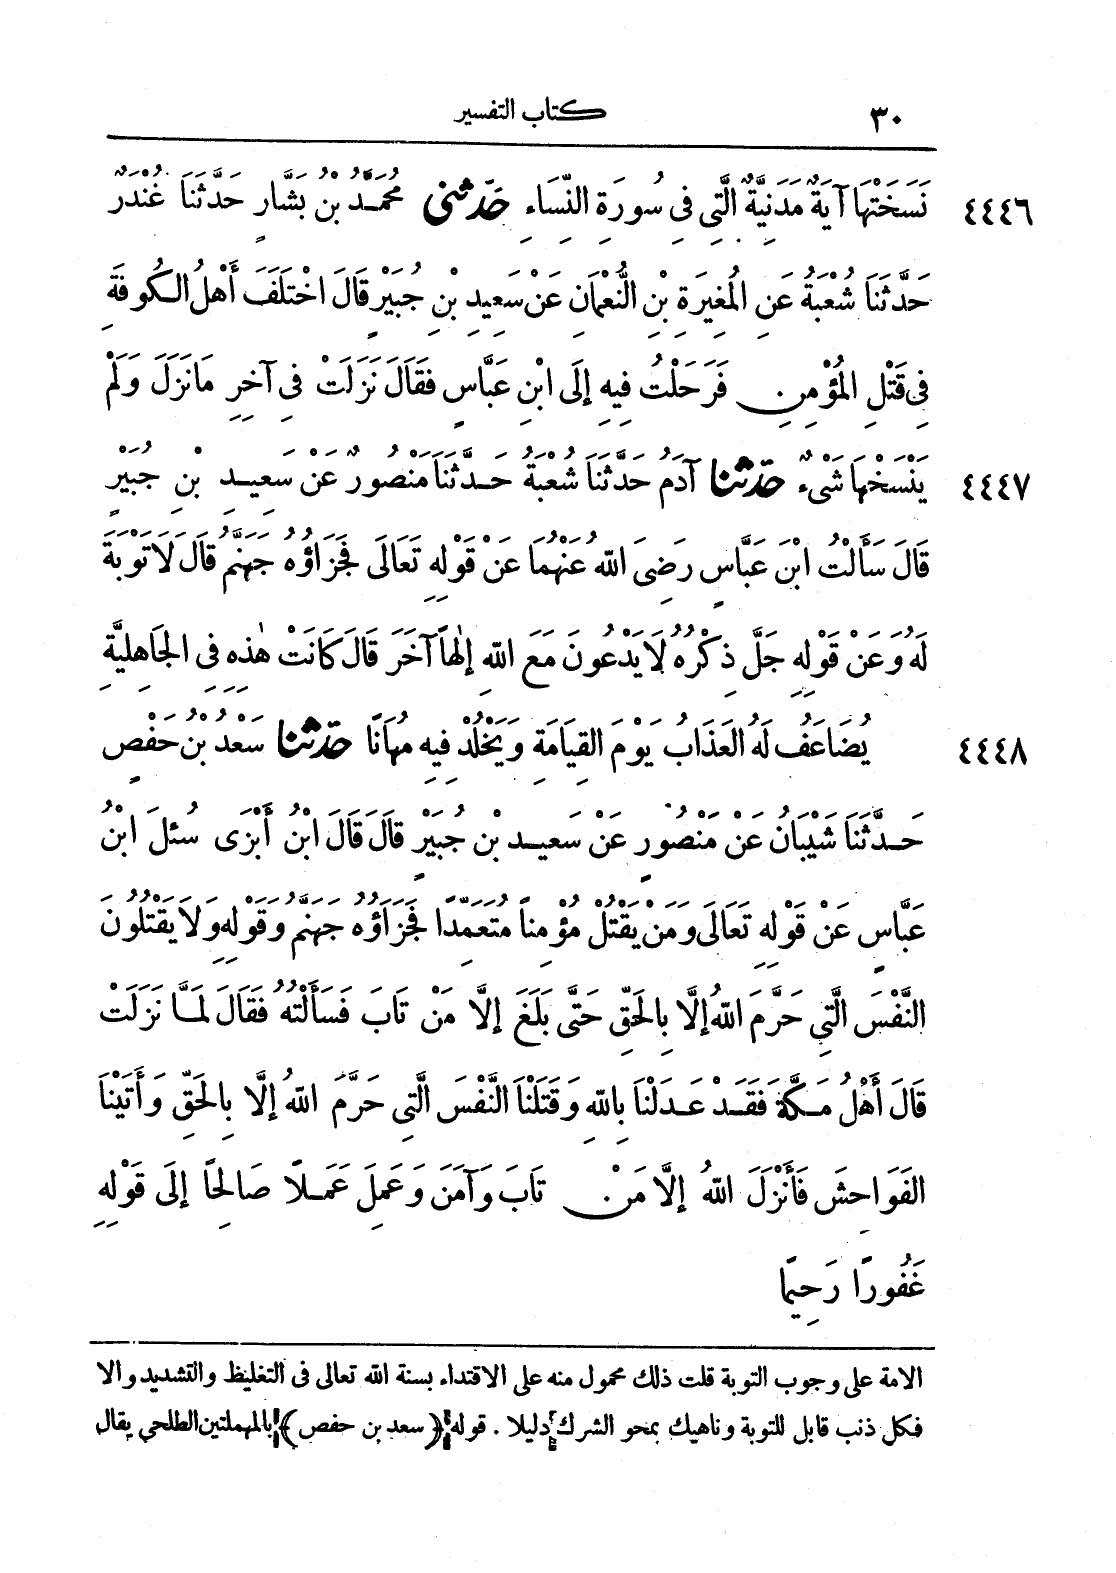 ٣٠ كتاب التفسير
٤٤٤٦ نَسَخَتْهَا آيَةٌ مَدَنِيَّةٌ الَّتِي فِي سُورَةِ النِّسَاءِ حَدَّثَنِي مُحَمَّدُ بْنُ بَشَّارٍ حَدَّثَنَا غُنْدَرٌ
حَدَّثَنَا شُعْبَةُ عَنِ الْمُغِيرَةِ بْنِ النُّعْمَانِ عَنْ سَعِيدِ بْنِ جُبَيْرٍ قَالَ اخْتَلَفَ أَهْلُ الْكُوفَةِ
فِي قَتْلِ الْمُؤْمِنِ فَرَحَلْتُ فِيهِ إِلَى ابْنِ عَبَّاسٍ فَقَالَ نَزَلَتْ فِي آخِرِ مَا نَزَلَ وَلَمْ
٤٤٤٧ يَنْسَخْهَا شَيْءٌ حَدَّثَنَا آدَمُ حَدَّثَنَا شُعْبَةُ حَدَّثَنَا مَنْصُورٌ عَنْ سَعِيدِ بْنِ جُبَيْرٍ
قَالَ سَأَلْتُ ابْنَ عَبَّاسٍ رَضِيَ اللَّهُ عَنْهُمَا عَنْ قَوْلِهِ تَعَالَى فَجَزَاؤُهُ جَهَنَّمُ قَالَ لَا تَوْبَةَ
لَهُ وَعَنْ قَوْلِهِ جَلَّ ذِكْرُهُ لَا يَدْعُونَ مَعَ اللَّهِ إِلٰهاً آخَرَ قَالَ كَانَتْ هٰذِهِ فِي الْجَاهِلِيَّةِ
٤٤٤٨ يُضَاعَفُ لَهُ الْعَذَابُ يَوْمَ الْقِيَامَةِ وَيَخْلُدْ فِيهِ مُهَانًا حَدَّثَنَا سَعْدُ بْنُ حَفْصٍ
حَدَّثَنَا شَيْبَانُ عَنْ مَنْصُورٍ عَنْ سَعِيدِ بْنِ جُبَيْرٍ قَالَ قَالَ ابْنُ أَبْزَى سُئِلَ ابْنُ
عَبَّاسٍ عَنْ قَوْلِهِ تَعَالَى وَمَنْ يَقْتُلْ مُؤْمِناً مُتَعَمِّدًا فَجَزَاؤُهُ جَهَنَّمُ وَقَوْلِهِ وَلَا يَقْتُلُونَ
النَّفْسَ الَّتِي حَرَّمَ اللَّهُ إِلَّا بِالْحَقِّ حَتَّى بَلَغَ إِلَّا مَنْ تَابَ فَسَأَلْتُهُ فَقَالَ لَمَّا نَزَلَتْ
قَالَ أَهْلُ مَكَّةَ فَقَدْ عَدَلْنَا بِاللَّهِ وَقَتَلْنَا النَّفْسَ الَّتِي حَرَّمَ اللَّهُ إِلَّا بِالْحَقِّ وَأَتَيْنَا
الْفَوَاحِشَ فَأَنْزَلَ اللَّهُ إِلَّا مَنْ تَابَ وَآمَنَ وَعَمِلَ عَمَلًا صَالِحًا إِلَى قَوْلِهِ
غَفُورًا رَحِيمًا
الامة على وجوب التوبة قلت ذلك محمول منه على الاقتداء بسنة الله تعالى فى التغليظ والتشديد والا
فكل ذنب قابل للتوبة وناهيك بمحو الشرك دليلا . قوله ﴿سعد بن حفص﴾ بالمهملتين الطلحي يقال